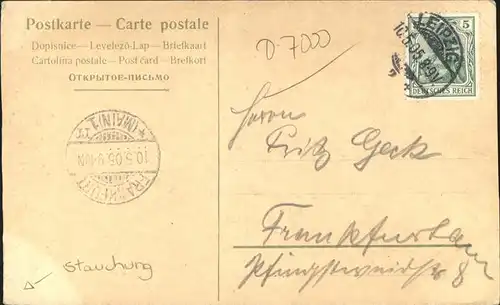 Postkarte — Carte postale
Dopisnice — Levelező-Lap — Briefkaart
Cartolina postale — Post card — Brefkort
Открытое-письмо
D-7000
LEIPZIG
10.5.05. 8-9V.
5 5
DEUTSCHES REICH
Herrn
Fritz Geck
Frankfurt a/M
Pfingstweidstr 8
FRANKFURT
10.5.05.
(MAIN) 1
Stauchung